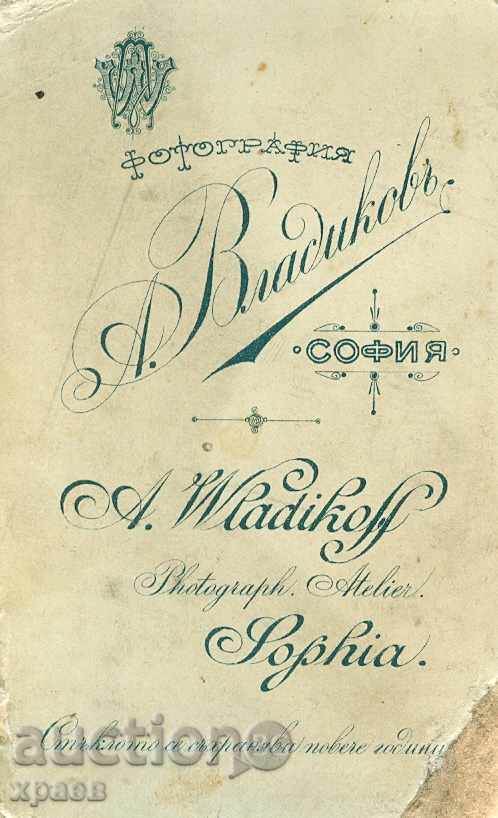 AW
ФОТОГРАФИЯ
А. Владиковъ
·СОФИЯ·
A. Wladikoff
Photograph. Atelier.
Sophia.
Стъклото се съхранява повече години
auction
храов